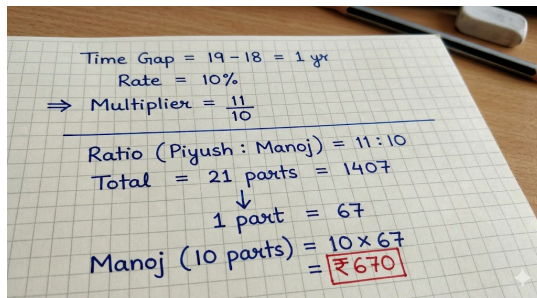 Time Gap = 19 - 18 = 1 yr
Rate = 10%
⇒ Multiplier = 11/10
Ratio (Piyush : Manoj) = 11 : 10
Total = 21 parts = 1407
↓
1 part = 67
Manoj (10 parts) = 10 × 67
= ₹670